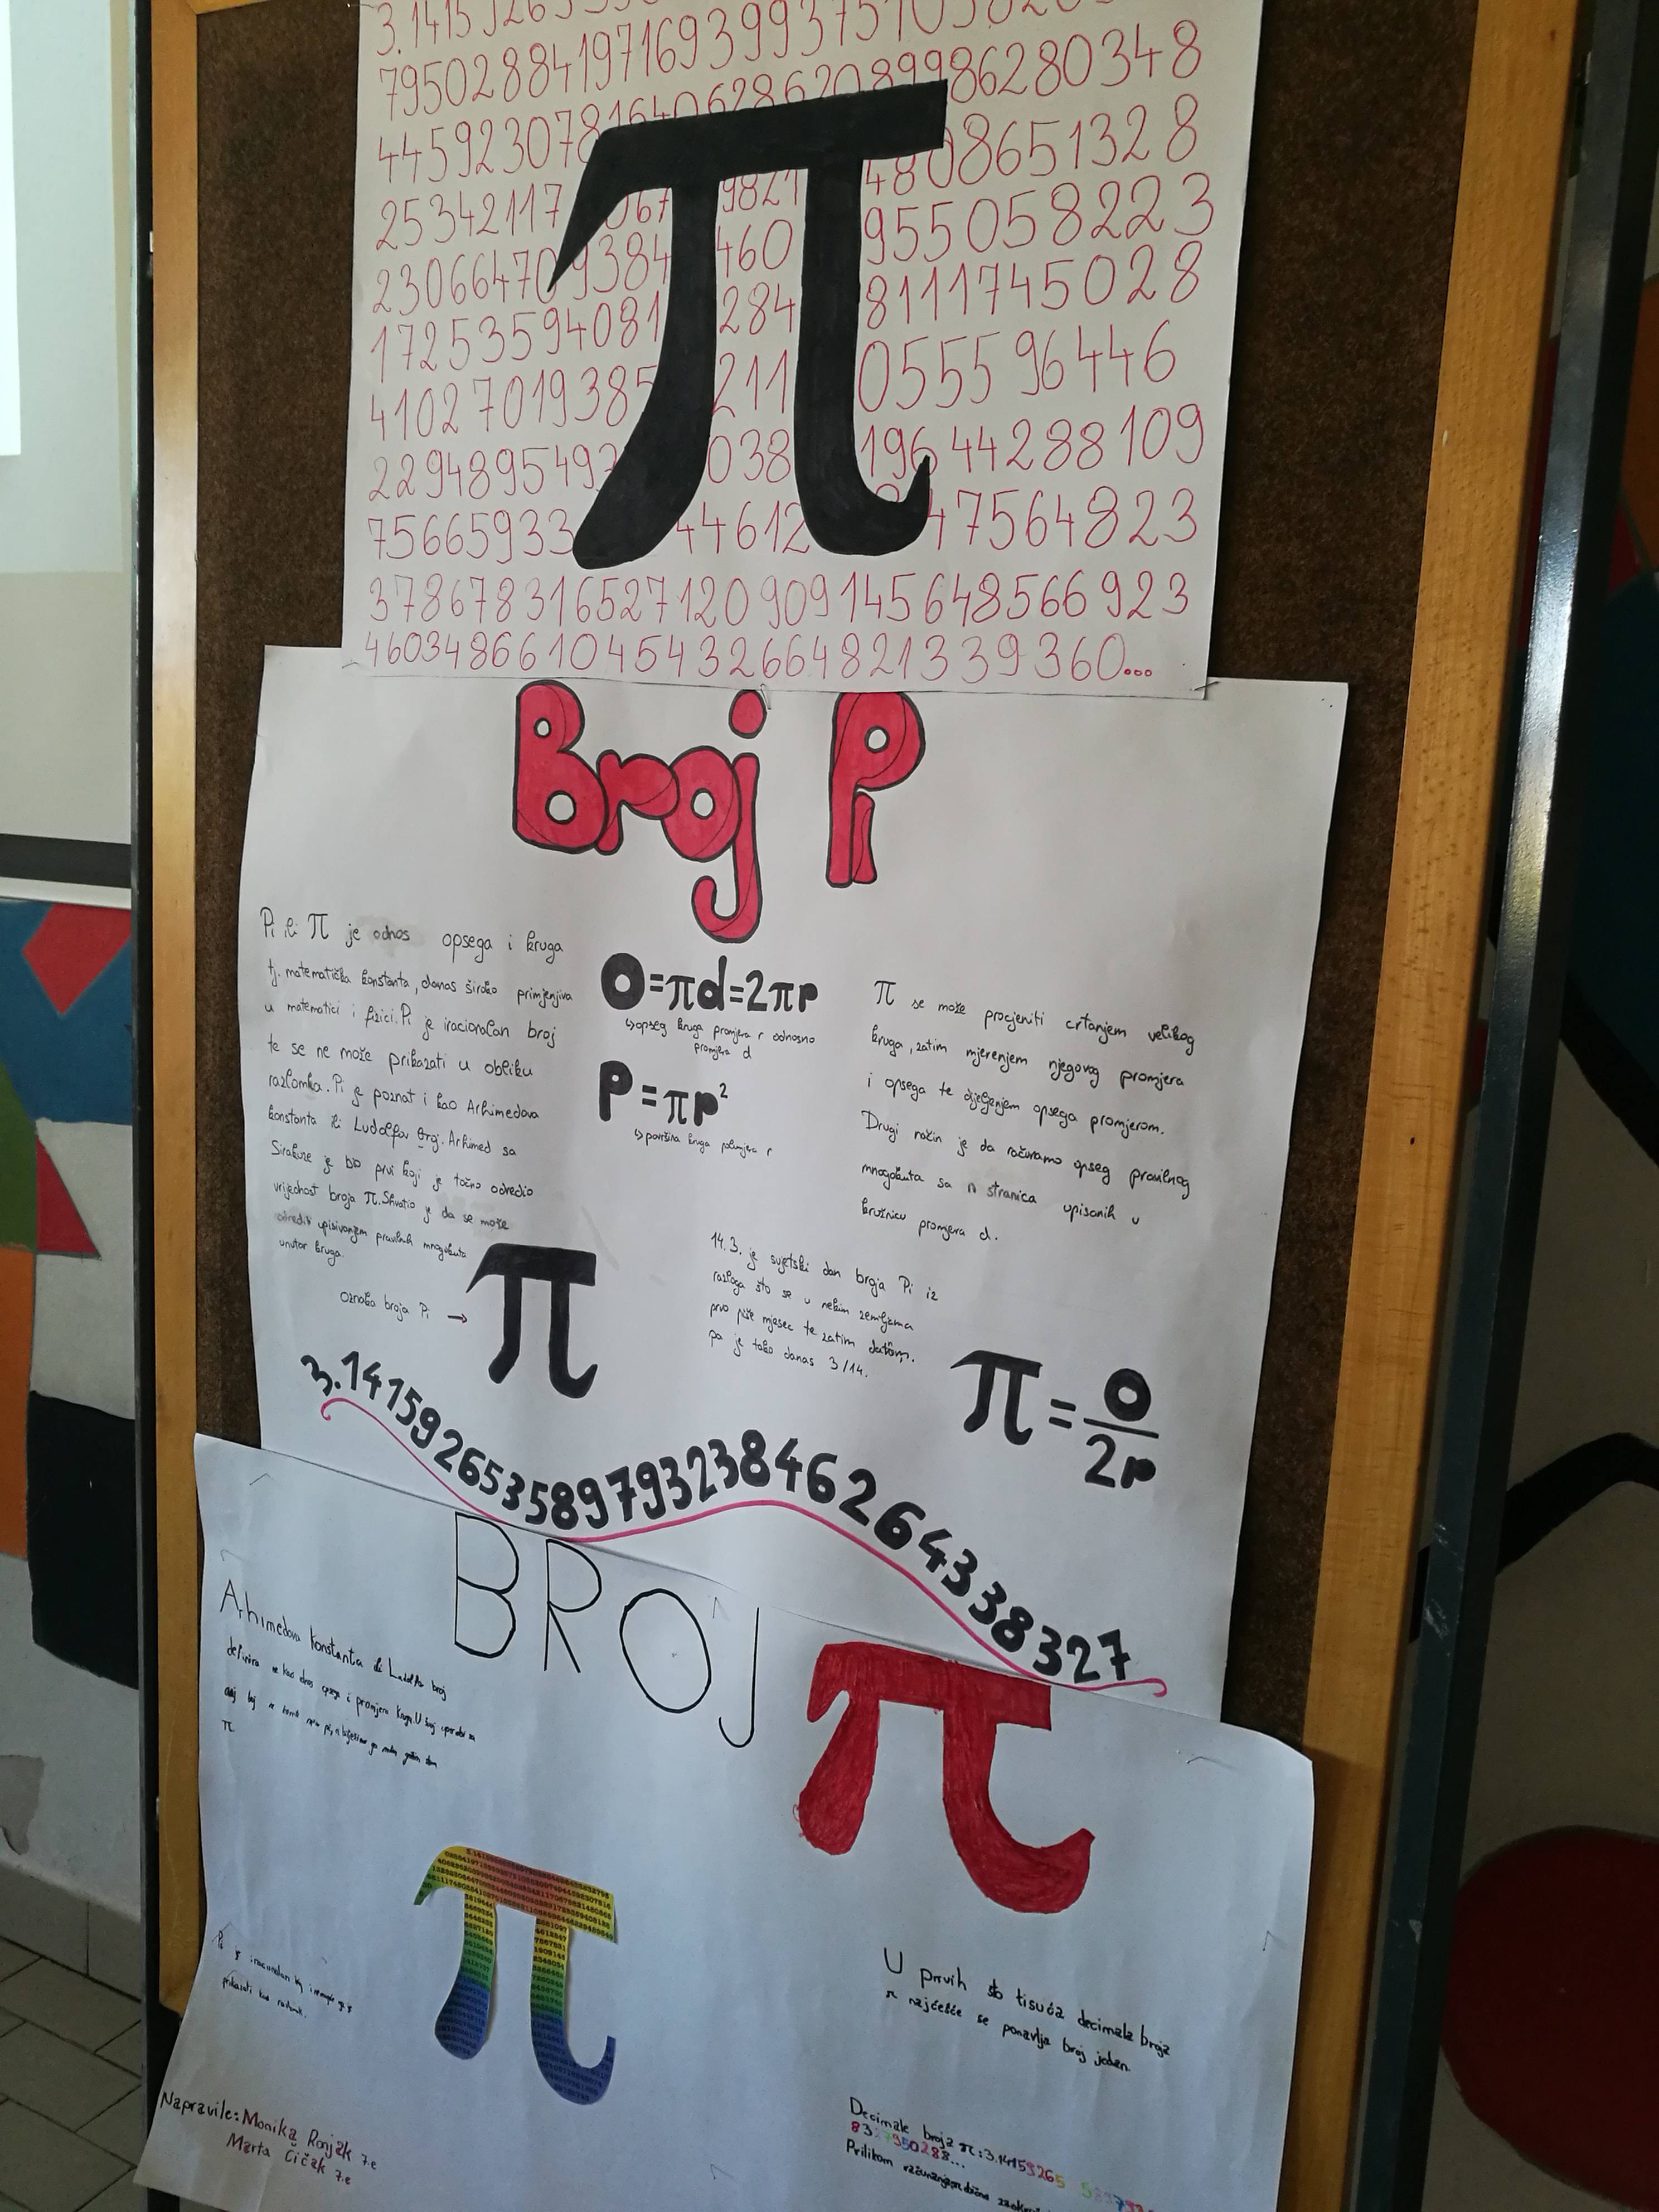 3.1415926535
79502884197169399375105820
4459230781640628620899 86280348
25342117 067 9821 480 8651328
2306647093844609550582 23
172535940812848111745028
41027019385211055596446
229489549 038 19644288109
75665933 44612 47564823
378678316527120909145648566923
460348661045432664821339360...
Broj Pi
Pi ili π je odnos opsega i kruga
tj. matematička konstanta, danas široko primjenjiva
u matematici i fizici. Pi je iracionalan broj
te se ne može prikazati u obliku
razlomka. Pi je poznat i kao Arhimedova
konstanta ili Ludolfov broj. Arhimed sa
Sirakuze je bio prvi koji je točno odredio
vrijednost broja π. Shvatio je da se može
odrediti upisivanjem pravilnih mnogokuta
unutar kruga.
Oznaka broja Pi →
π
O=πd=2πr
↳opseg kruga promjera r odnosno
promjera d
P=πr²
↳površina kruga polumjera r
π se može procjeniti crtanjem velikog
kruga, zatim mjerenjem njegovog promjera
i opsega te djeljenjem opsega promjerom.
Drugi način je da računamo opseg pravilnog
mnogokuta sa n stranica upisanih u
kružnicu promjera d.
14.3. je svjetski dan broja Pi iz
razloga što se u nekim zemljama
prvo piše mjesec te zatim datum.
pa je tako danas 3/14.
π=O/2r
3.14159265358979323846264338327
BROJ π
Arhimedova konstanta ili Ludolfov broj
definira se kao odnos opsega i promjera kruga. U svoj uporabi za
π
Pi je iracionalan broj i nemoguće ga je
prikazati kao razlomak.
U prvih sto tisuća decimala broja
π najčešće se ponavlja broj jedan.
Decimale broja π: 3.14159265 5897932
8327950288...
Prilikom računanja
Napravile: Monika Ronjak 7.e
Marta Čičak 7.e